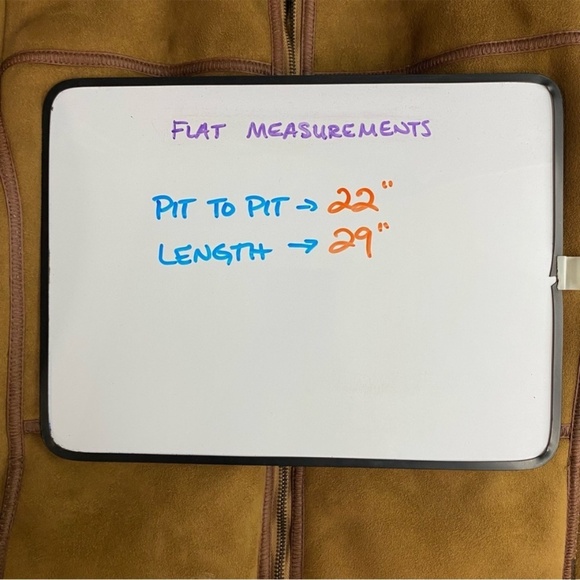 FLAT MEASUREMENTS
PIT TO PIT → 22"
LENGTH → 29"